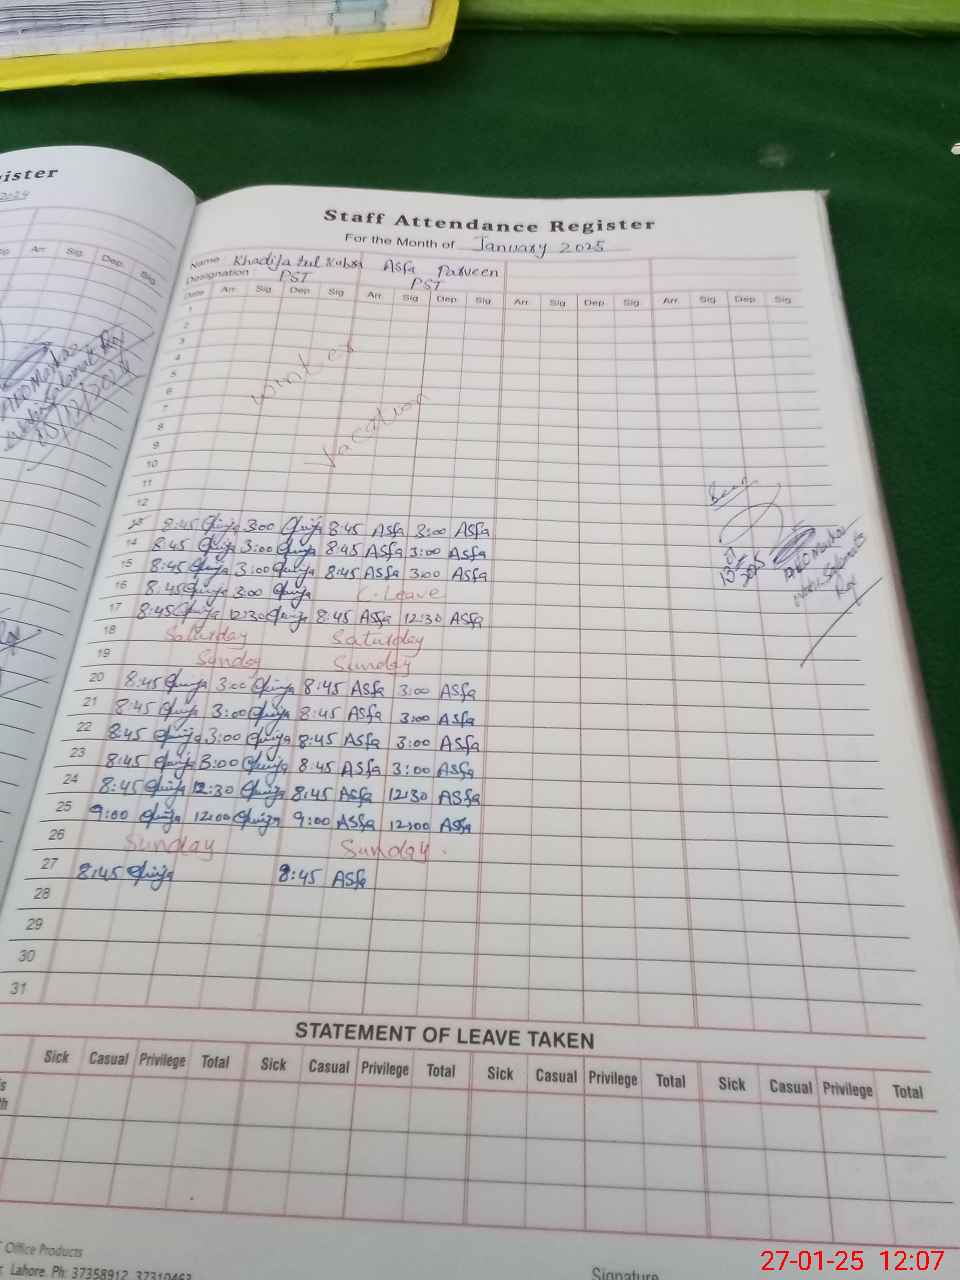 ister
2024
Arr. Sig. Dep. Sig.
Staff Attendance Register
For the Month of January 2025
Name Khadija tul Kubra Asfa Parveen
Designation PST PST
Date Arr. Sig. Dep. Sig. Arr. Sig. Dep. Sig. Arr. Sig. Dep. Sig. Arr. Sig. Dep. Sig.
1
2
3
4
5
6
7
8
9
10
11
12
winter
vacation
Seen
13 8:45 3:00 8:45 Asfa 3:00 Asfa
14 8:45 3:00 8:45 Asfa 3:00 Asfa
15 8:45 3:00 8:45 Asfa 3:00 Asfa
16 8:45 3:00 C.Leave
17 8:45 12:30 8:45 Asfa 12:30 Asfa
18 Saturday Saturday
19 Sunday Sunday
20 8:45 3:00 8:45 Asfa 3:00 Asfa
21 8:45 3:00 8:45 Asfa 3:00 Asfa
22 8:45 3:00 8:45 Asfa 3:00 Asfa
23 8:45 3:00 8:45 Asfa 3:00 Asfa
24 8:45 12:30 8:45 Asfa 12:30 Asfa
25 9:00 12:00 9:00 Asfa 12:00 Asfa
26 Sunday Sunday
27 8:45 8:45 Asfa
28
29
30
31
STATEMENT OF LEAVE TAKEN
Sick Casual Privilege Total Sick Casual Privilege Total Sick Casual Privilege Total Sick Casual Privilege Total
Office Products
Lahore. Ph: 37358912, 37310463
Signature
27-01-25 12:07